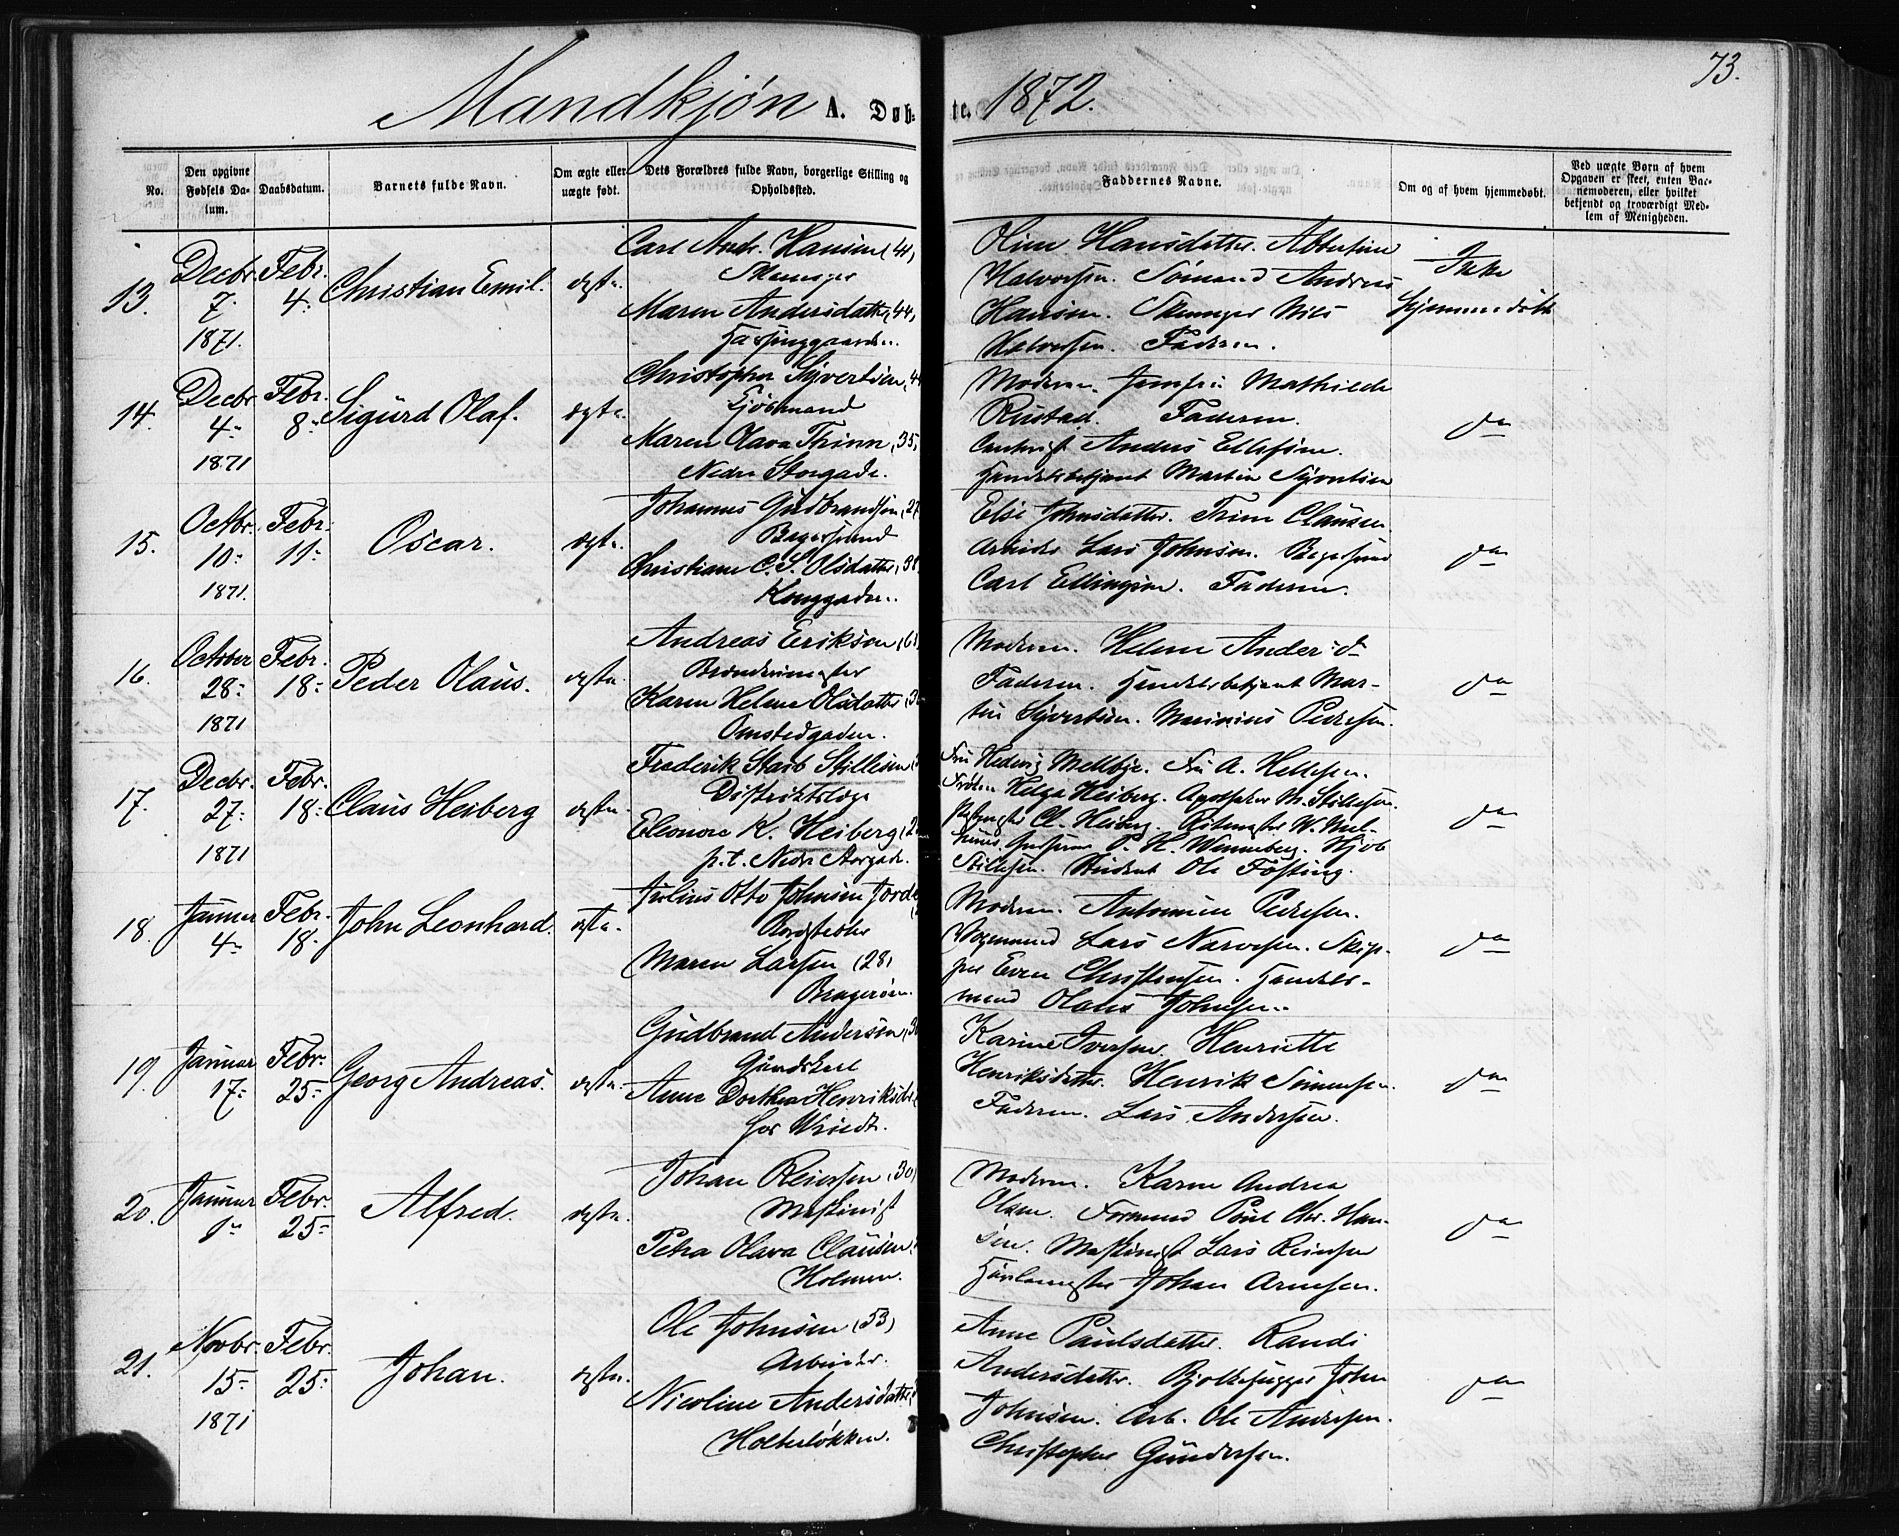 73.
Mandkjøn A. Døb-
te. 1872.
No.
Den opgivne Fødsels Da-
tum.
Daabsdatum.
Barnets fulde Navn.
Om ægte eller
uægte født.
Dets Forældres fulde Navn, borgerlige Stilling og
Opholdssted.
Faddernes Navne.
Om og af hvem hjemmedøbt.
Ved uægte Børn af hvem
Opgaven er skeet, enten Bar-
nemoderen, eller hvilket
bekjendt og troværdigt Med-
lem af Menigheden.
13.
Decbr.
7.
1871.
Febr.
4.
Christian Emil.
ægte.
Carl Andr. Hansen (41,
Maren Andersdatter, 44,
Halvorsen. Sømand Andreas
Hansen. Nils
Halvorsen. Faderen.
Ikke
hjemmedøbt
14.
Decbr
4.
1871
Febr.
8.
Sigurd Olaf.
ægte.
Christopher Syvertsen, 44
Sjømand
Maren Olava Thinn, 35,
Nedre Storgade.
Moderen. Jomfru Mathilde
Rustad. Faderen.
Anders Ellefsen.
Handelsbetjent Martin Syvertsen
do
15.
Octbr.
10.
1871.
Febr.
11.
Oscar.
ægte.
Johannes Gudbrandsen, 27
Bagersvend
Christiane C. S. Olsdatter, 38
Konggaden.
Else Johnsdatter. Clausen
Arbeider Lars Johnsen. Bagersvend
Carl Ellingsen. Faderen.
do
16.
October
28.
1871
Febr.
18.
Peder Olaus.
ægte.
Andreas Eriksen, 61
Karen Helene Olsdatter, 3
Omstedgaden.
Moderen. Helene Andersd.
Faderen. Handelsbetjent Mar-
tin Syvertsen. Marinius Pedersen.
do
17.
Decbr.
27.
1871
Febr.
18.
Claus Heiberg
ægte.
Frederik Stabo Stillesen
Distriktslæge
Eleonore K. Heiberg (2
p.t. Nedre Storgade.
Fru Hedvig Mellbye. Fru A. Hellesen.
Frøken Helga Heiberg. Apotheker M. Stillesen.
Cl. Heiberg. Ritmester W. Mel-
P. H. Winneberg. Hjob
Stillesen. Student Ole Føsting.
do
18.
Januar
4.
Febr.
18.
John Leonhard.
ægte.
Julius Otto Johnsen Jorde
Maren Larsen (28,
Bragerøen.
Moderen. Antonine Pedersen.
Vognmand Lars Narvesen. Skip-
per Even Christensen. Handels-
mand Olaus Johnsen.
do
19.
Januar
17.
Febr.
25.
Georg Andreas.
ægte.
Gudbrand Andersen, 30
Gaardskarl
Anne Dorthea Henriksdtr.
hos Wriedt.
Karine Iversen. Henriette
Henriksdatter. Henrik Simensen.
Faderen. Lars Andersen.
do
20.
Januar
1.
Febr.
25.
Alfred.
ægte.
Johan Reiersen, 30,
Maskinist
Petra Olava Clausen
Holmen.
Moderen. Karen Andrea
Olsen. Formand Poul Chr. Han-
sen. Maskinist Lars Reiersen
Johan Arnesen.
do
21.
Novbr.
15.
1871
Febr.
25.
Johan.
ægte.
Ole Johnsen (53)
Arbeider.
Nicoline Andersdatter,
Holterløkken.
Anne Paulsdatter. Randi
Andersdatter. John
Johnsen. Arb. Ole Andersen.
Christopher Gundersen.
do